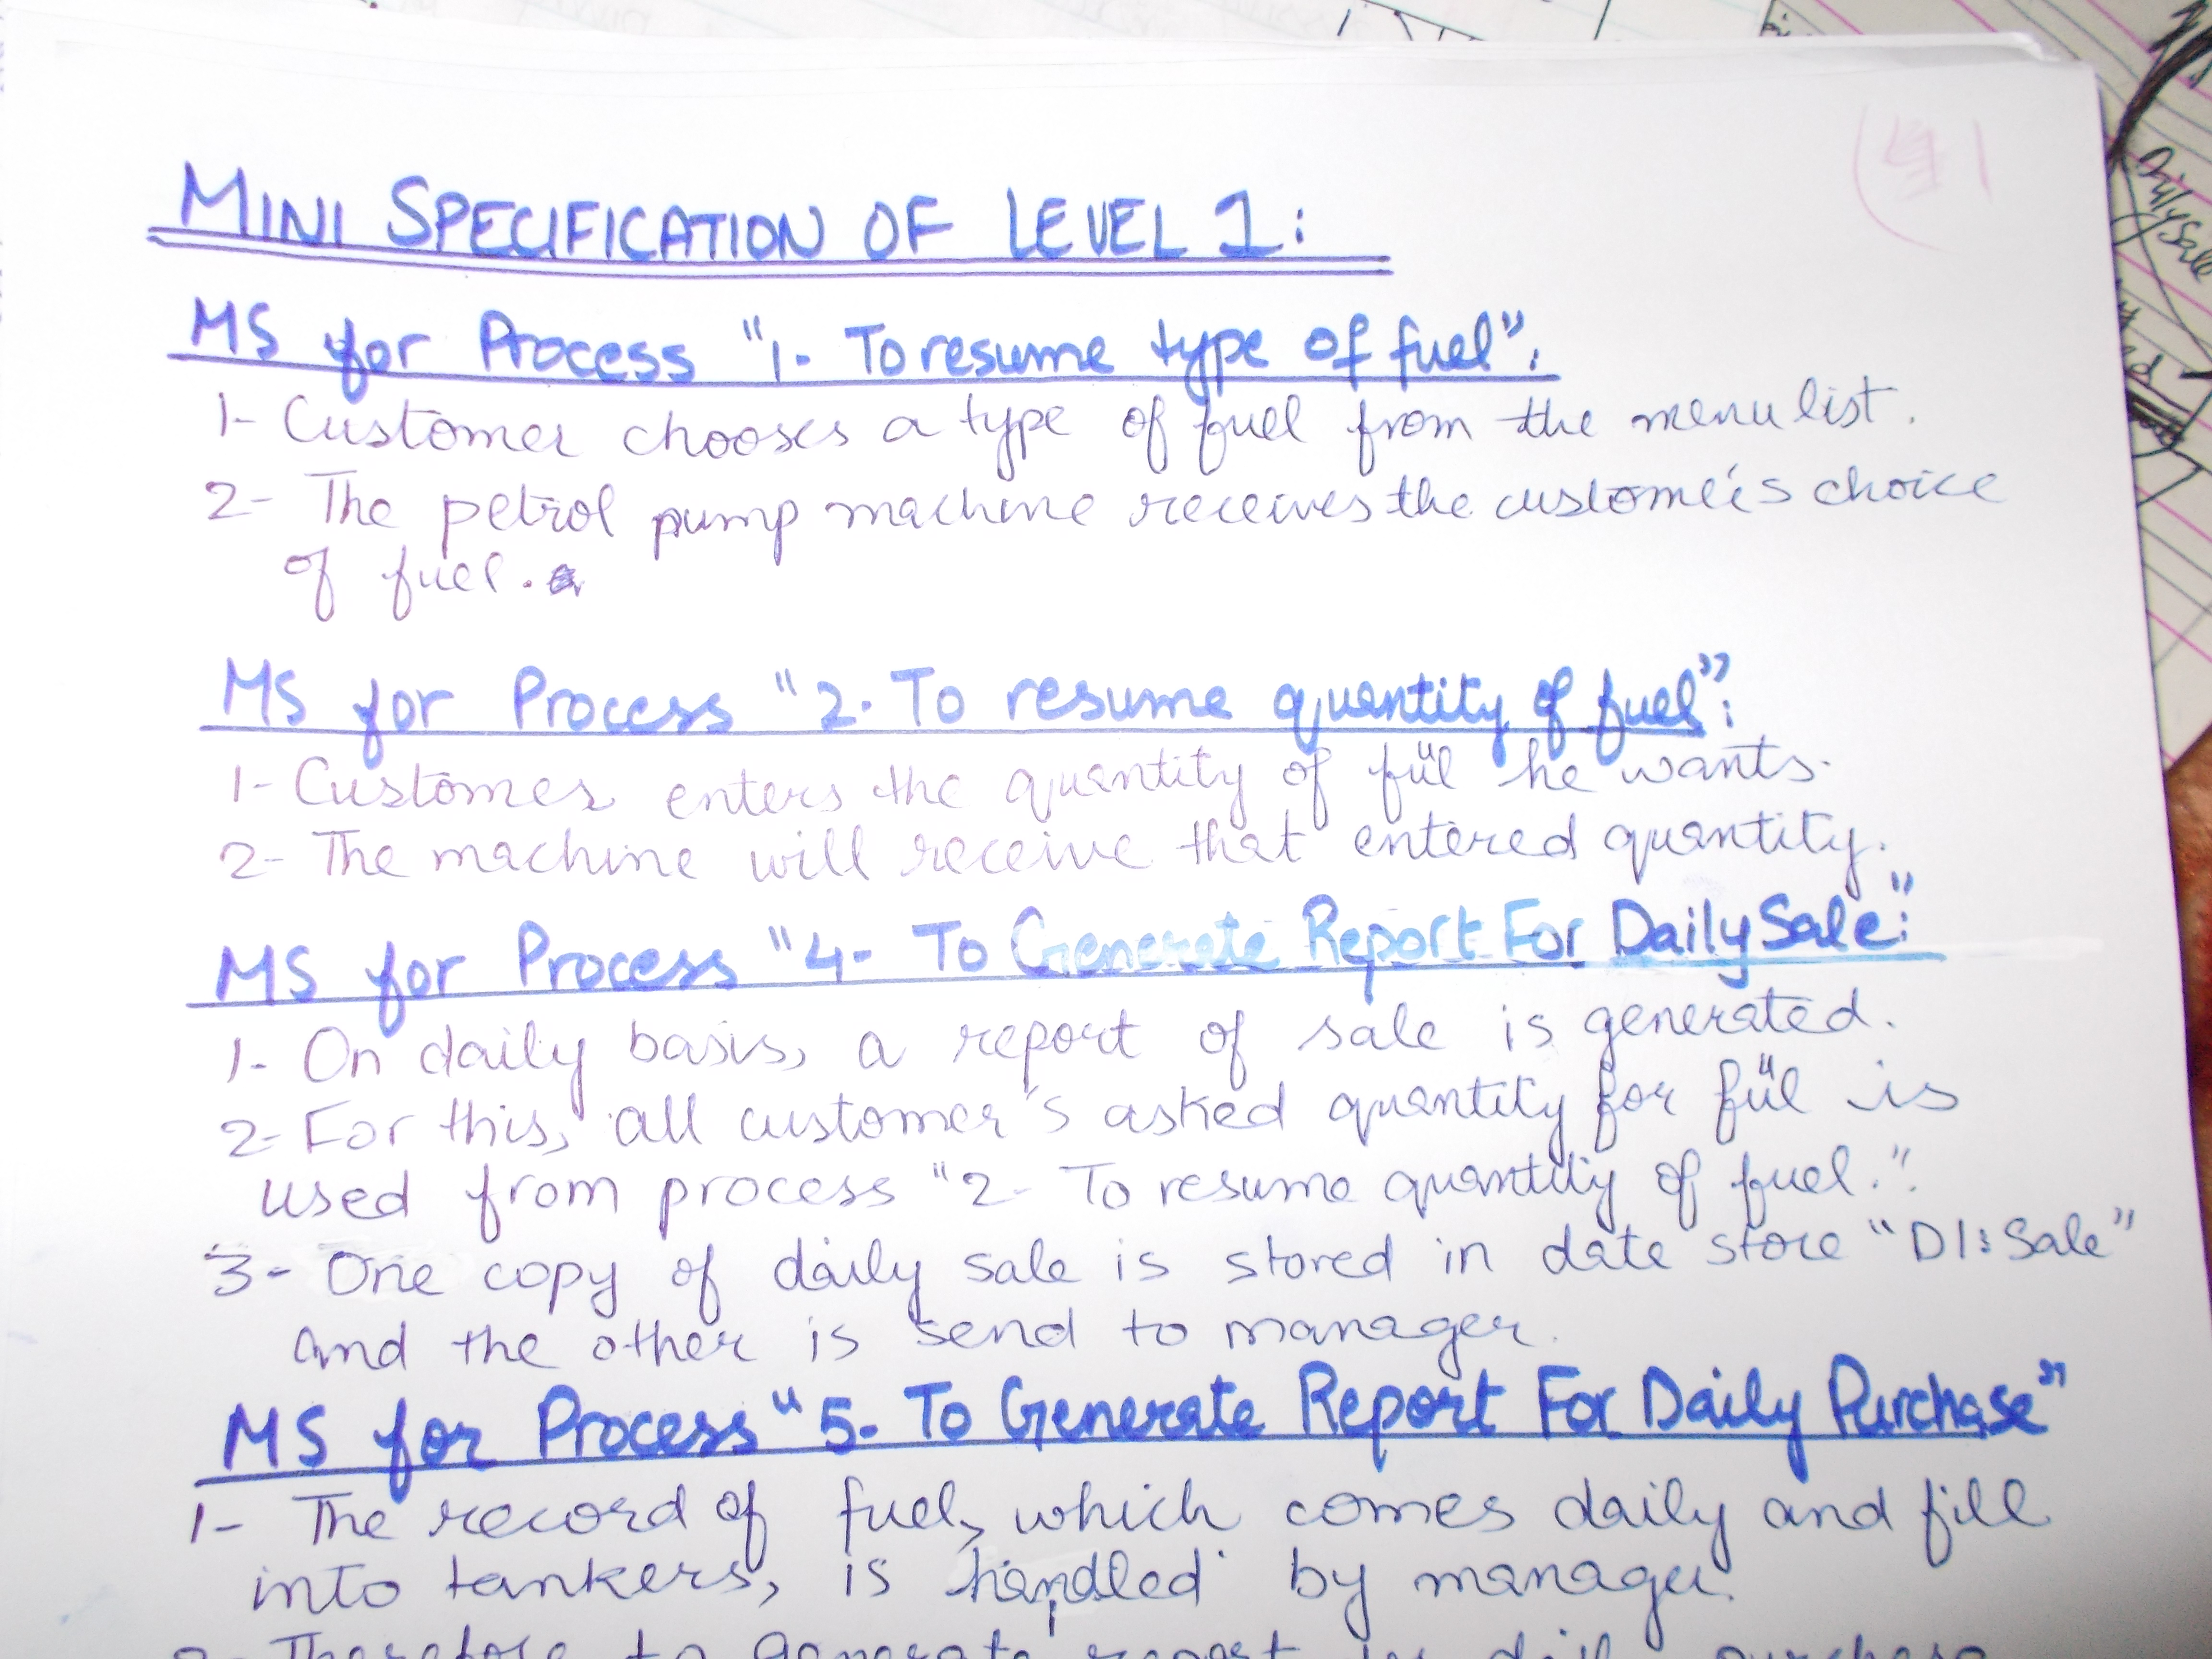 MINI SPECIFICATION OF LEVEL 1:
MS for Process "1- To resume type of fuel":
1- Customer chooses a type of fuel from the menu list.
2- The petrol pump machine receives the customer's choice
of fuel.
MS for Process "2- To resume quantity of fuel":
1- Customer enters the quantity of fuel he wants.
2- The machine will receive that entered quantity.
MS for Process "4- To Generate Report For Daily Sale":
1- On daily basis, a report of sale is generated.
2- For this, all customer's asked quantity for fuel is
used from process "2- To resume quantity of fuel."
3- One copy of daily sale is stored in date store "D1: Sale"
and the other is send to manager.
MS for Process "5- To Generate Report For Daily Purchase"
1- The record of fuel, which comes daily and fill
into tankers, is handled by manager.
2- Therefore to generate report for daily purchase
Daily Sale